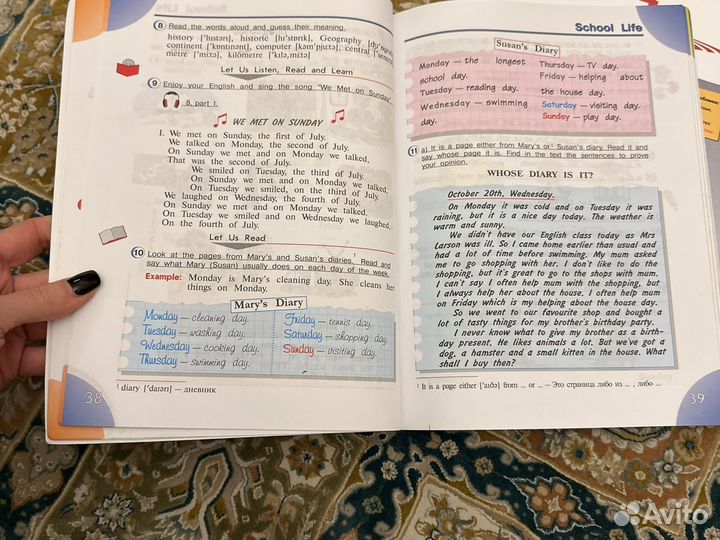 8 Read the words aloud and guess their meaning.
history ['hɪstərɪ], historic [hɪ'stɒrɪk], Geography
continent ['kɒntɪnənt], computer [kəm'pju:tə], central
metre ['mi:tə], kilometre ['kɪləˌmi:tə]
Let Us Listen, Read and Learn
9 Enjoy your English and sing the song "We Met on Sunday".
8, part I.
WE MET ON SUNDAY
I. We met on Sunday, the first of July.
We talked on Monday, the second of July.
On Sunday we met and on Monday we talked,
That was the second of July.
We smiled on Tuesday, the third of July.
On Sunday we met and on Monday we talked,
On Tuesday we smiled, on the third of July.
We laughed on Wednesday, the fourth of July.
On Sunday we met and on Monday we talked,
On Tuesday we smiled and on Wednesday we laughed,
On the fourth of July.
Let Us Read
10 Look at the pages from Mary's and Susan's diaries.¹ Read and
say what Mary (Susan) usually does on each day of the week.
Example: Monday is Mary's cleaning day. She cleans her
things on Monday.
Mary's Diary
Monday — cleaning day.
Tuesday — washing day.
Wednesday — cooking day.
Thursday — swimming day.
Friday — tennis day.
Saturday — shopping day.
Sunday — visiting day.
¹ diary ['daɪərɪ] — дневник
38
School Life
Susan's Diary
Monday — the longest
school day.
Tuesday — reading day.
Wednesday — swimming
day.
Thursday — TV day.
Friday — helping about
the house day.
Saturday — visiting day.
Sunday — play day.
11 a) It is a page either from Mary's or¹ Susan's diary. Read it and
say whose page it is. Find in the text the sentences to prove
your opinion.
WHOSE DIARY IS IT?
October 20th, Wednesday.
On Monday it was cold and on Tuesday it was
raining, but it is a nice day today. The weather is
warm and sunny.
We didn't have our English class today as Mrs
Larson was ill. So I came home earlier than usual and
had a lot of time before swimming. My mum asked
me to go shopping with her. I don't like to do the
shopping, but it's great to go to the shops with mum.
I can't say I often help mum with the shopping, but
I always help her about the house. I often help mum
on Friday which is my helping about the house day.
So we went to our favourite shop and bought a
lot of tasty things for my brother's birthday party.
I never know what to give my brother as a birth-
day present. He likes animals a lot. But we've got a
dog, a hamster and a small kitten in the house. What
shall I buy then?
¹ It is a page either ['aɪðə] from ... or ... — Это страница либо из ... , либо ...
39
Avito